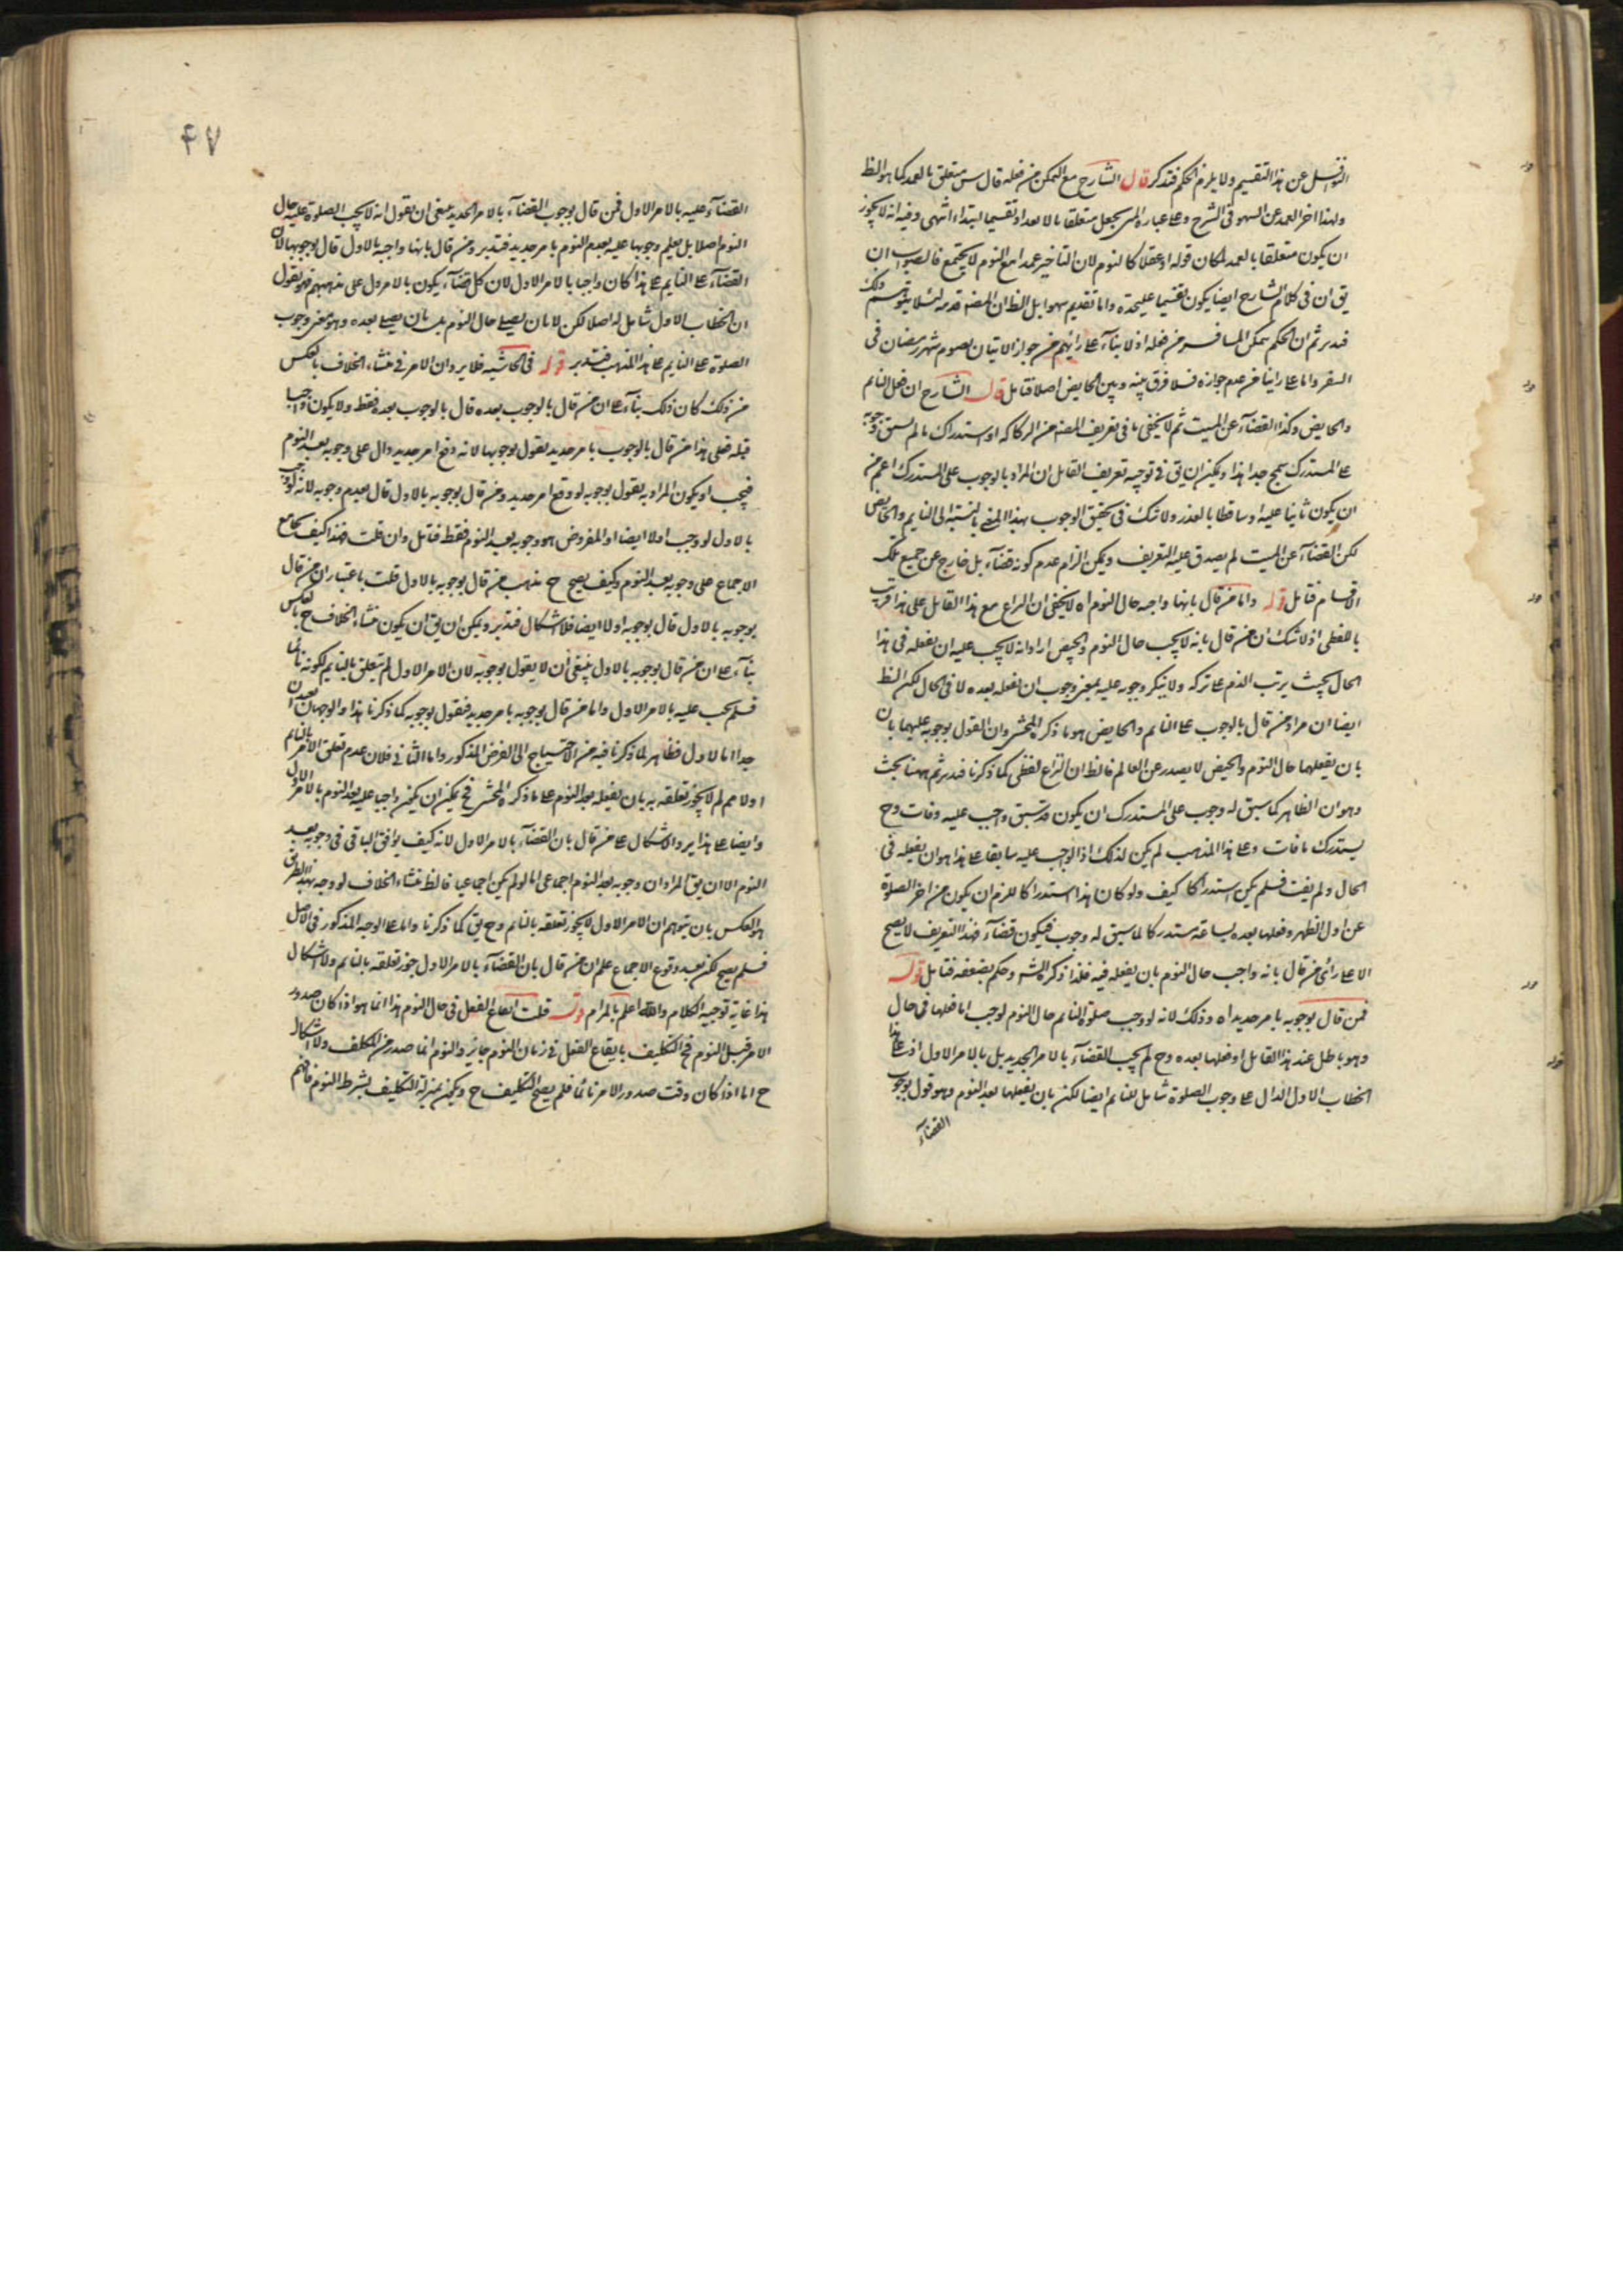 النوافل عن هذا التقسيم ولا يلزم الحكم فتدكر قال الشارح مع التمكن من فعله قال س متعلق بالعمد كما هو الظ
ولهذا اخر العمد عن السهو فى الشرح وعلى عبارة المص يجعل متعلقا بالاعداد تقسيما ابتداء انتهى وفيه انه لا يجوز
ان يكون متعلقا بالعمد لمكان قوله او عقلا كالنوم لان التاخير عمدا مع النوم لا يجتمع فالصواب ان
يق ان فى كلام الشارح ايضا يكون تقسيما عليحده واما تقديم سهوا بل الظ ان المصنف قدمه لئلا يتوهم ذلك
فتدبر ثم ان الحكم بتمكن المسافر من فعله اذ لا بناء على رايهم من جواز الاتيان بصوم شهر رمضان فى
السفر واما على راينا من عدم جوازه فلا فرق بينه وبين الحايض اصلا فتامل قال الشارح ان فعل النايم
والحايض وكذا القضاء عن الميت ثم لا يخفى ما فى تعريف المصنف من الركاكه اذ استدراك ما لم يسبق وجوبه
على المستدرك سمج جدا هذا ويمكن ان يق فى توجيه تعريف القايل ان المراد بالوجوب على المستدرك اعم من
ان يكون ثابتا عليه او ساقطا بالعذر ولا شك فى تحقق الوجوب بهذا المعنى بالنسبة الى النايم والحايض
لكن القضاء عن الميت لم يصدق عليه التعريف ويمكن الزام عدم كونه قضاء بل خارج عن جميع تلك
الاقسام فتامل قوله واما من قال بانها واجبه حال النوم اه لا يخفى ان النزاع مع هذا القايل على هذا قريب
بالفظى اذ لا شك ان من قال بانه لا يجب حال النوم والحيض اراد انه لا يجب عليه ان يفعله فى هذا
الحال بحيث يترتب الذم على تركه ولا ينكر وجوبه عليه بمعنى وجوب ان يفعله بعده لا فى الحال لكن الظ
ايضا ان مراد من قال بالوجوب على النايم والحايض هو ما ذكره المحشى وان القول بوجوبه عليهما بان
بان يفعلهما حال النوم والحيض لا يصدر عن العالم فالظ ان النزاع لفظى كما ذكرنا فتدبر ثم ههنا بحث
وهو ان الظاهر كما سبق له وجوب على المستدرك ان يكون قد سبق واجب عليه وفات وح
يستدرك ما فات وعلى هذا المذهب لم يكن لذلك اذ الواجب عليه سابقا على هذا هو ان يفعله فى
الحال ولم يفت فلم يكن استدراكا كيف ولو كان هذا استدراكا للزم ان يكون من اخر الصلوة
عن اول الظهر وفعلها بعده بساعة مستدركا لما سبق له وجوب فيكون قضاء فهذا التعريف لا يصح
الا على راى من قال بانه واجب حال النوم بان يفعله فيه فلذا ذكره الش وحكم بضعفه فتامل قوله
فمن قال بوجوبه بامر جديد اه وذلك لانه لو وجب صلوة النايم حال النوم لوجب اما فعلها فى حال
وهو باطل عند هذا القايل او فعلها بعده وح لم يجب القضاء بالامر الجديد بل بالامر الاول اذ على هذا
الخطاب الاول الدال على وجوب الصلوة شامل للنايم ايضا لكن بان يفعلها بعد النوم وهو قول بوجوب
القضاء
٤٧
القضاء عليه بالامر الاول فمن قال بوجوب القضاء بالامر الجديد ينبغى ان يقول انه لا يجب الصلوة عليه حال
النوم اصلا بل يعلم وجوبها عليه بعد النوم بامر جديد فتدبر ومن قال بانها واجبه بالاول قال بوجوبها لان
القضاء على النايم على هذا كان واجبا بالامر الاول لان كل قضاء يكون بالامر الاول على مذهبهم فهو يقول
ان الخطاب الاول شامل له اصلا لكن لا بان يصلى حال النوم بل بان يصلى بعده وهو معنى وجوب
الصلوة على النايم على هذا المذهب فتدبر قوله فى الحاشيه فلا يرد ان الامر فى منشاء الخلاف بالعكس
من ذلك كان ذلك بناء على ان من قال بالوجوب بعده قال بالوجوب بعده فقط ولا يكون واجبا
قبله فعلى هذا من قال بالوجوب بامر جديد يقول بوجوبها لانه وقع امر جديد دال على وجوبه بعد النوم
فيجب او يكون المراد به يقول بوجوبه لو وقع امر جديد ومن قال بوجوبه بالاول قال بعدم وجوبه لانه لو وجب
بالاول لوجب اولا ايضا والمفروض هو وجوبه بعد النوم فقط فتامل وان قلت فهذا كيف يجامع
الاجماع على وجوبه بعد النوم وكيف يصح ح مذهب من قال بوجوبه بالاول قلت باعتبار ان من قال
بوجوبه بالاول قال بوجوبه اولا ايضا فلا اشكال فتدبر ويمكن ان يق ان يكون منشاء الخلاف ح بالعكس
بناء على ان من قال بوجوبه بالاول ينبغى ان لا يقول بوجوبه لان الامر الاول لم يتعلق بالنايم لكونه نائما
فلم يجب عليه بالامر الاول واما من قال بوجوبه بامر جديد فيقول بوجوبه كما ذكرنا هذا والوجهان بعيدان
جدا اما الاول فظاهر لما ذكرنا فيه من الاحتياج الى الفرض المذكور واما الثانى فلان عدم تعلق الامر بالنايم
اولا مم لم لا يجوز تعلقه به بان يفعله بعد النوم على ما ذكره المحشى فح يمكن ان يكون واجبا عليه بعد النوم بالامر الاول
وايضا على هذا يرد الاشكال على من قال بان القضاء بالامر الاول لانه كيف يوافق الباقى فى وجوبه بعد
النوم الا ان يق المراد ان وجوبه بعد النوم اجماعى اما لو لم يكن اجماعيا فالظ منشاء الخلاف لو وجد بهذا الطريق
هو العكس بان يتوهم ان الامر الاول لا يجوز تعلقه بالنايم وح يق كما ذكرنا واما على الوجه المذكور فى الاصل
فلم يصح لكن بعد وقوع الاجماع علم ان من قال بان القضاء بالامر الاول جوز تعلقه بالنايم ولا اشكال
هذا غاية توجيه الكلام والله اعلم بالمرام قوله قلت ايقاع الفعل فى حال النوم هذا انما هو اذا كان صدور
الامر قبل النوم فح التكليف بايقاع الفعل فى زمان النوم جائز والنوم انما صدر من المكلف ولا اشكال
ح اما اذا كان وقت صدور الامر نائما فلم يصح التكليف ح ويمكن بمنزلة التكليف بشرط النوم فافهم